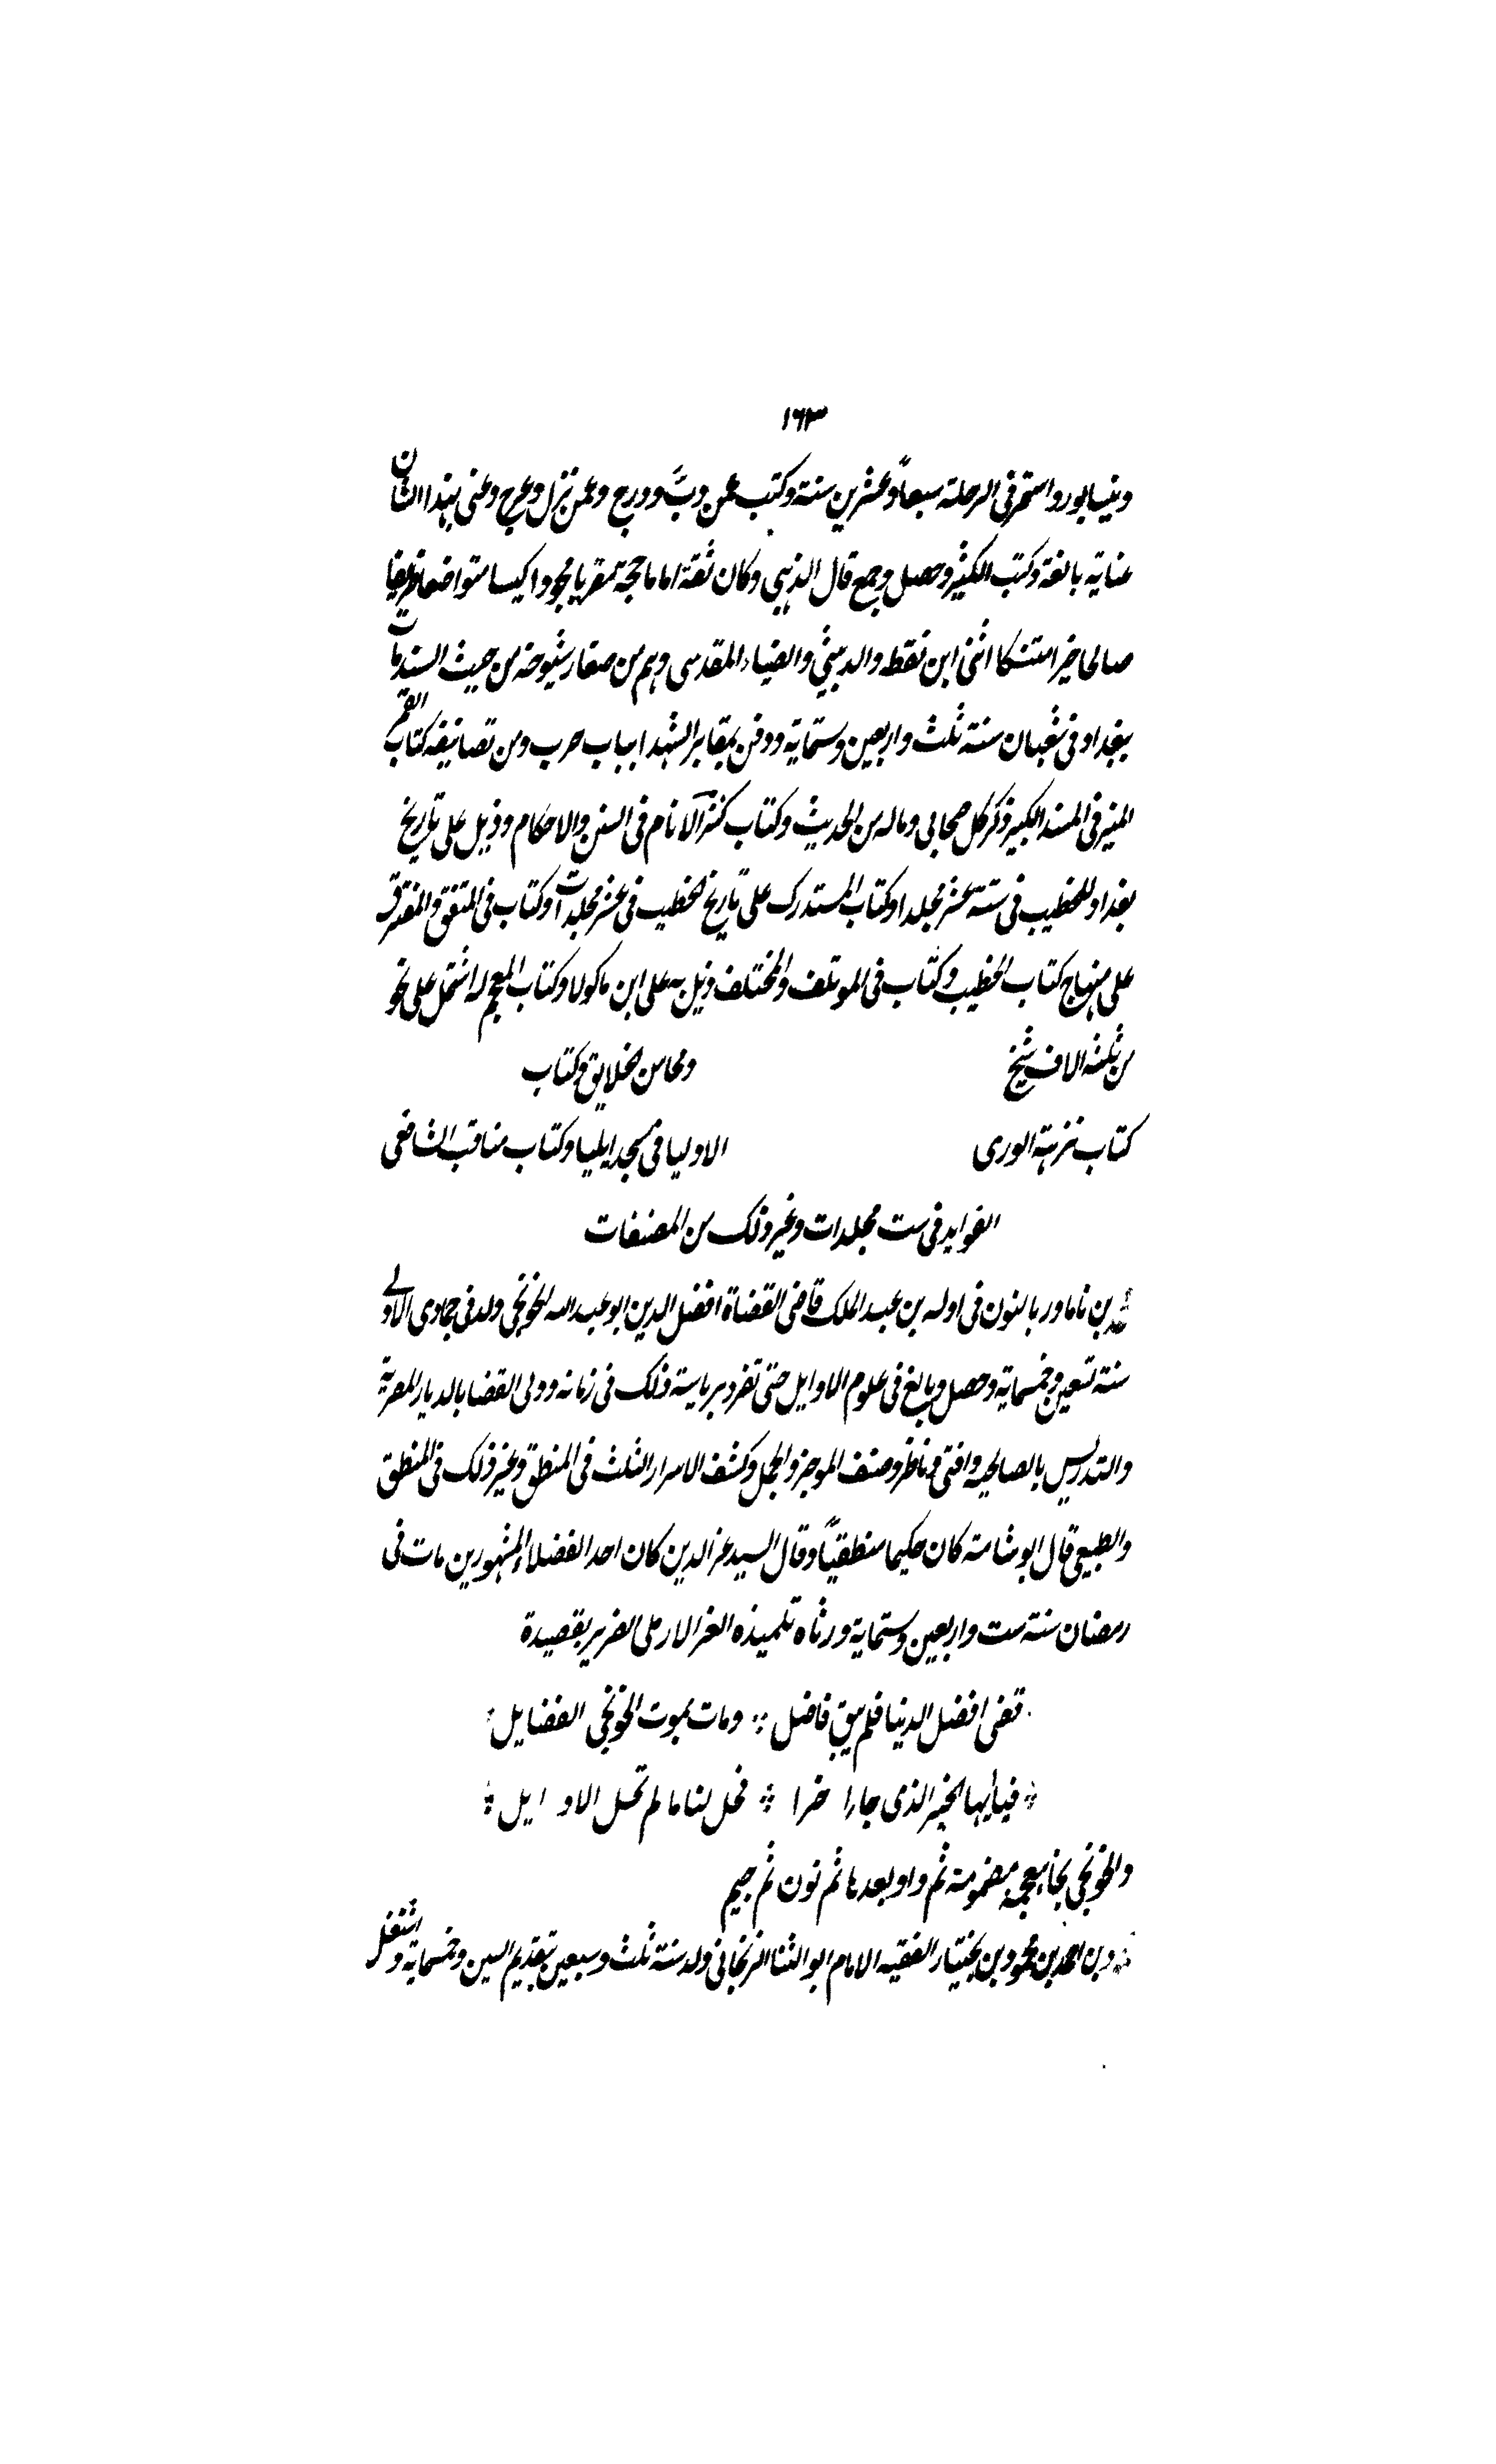 ١٦٣
ونيسابور واستمر فى الرحلة سبعاً وعشرين سنة وكتب عمن دبَّ ودرج وعمن نزل وعرج وعنى بهذا الشان
عناية بالغة وكتب الكثير وحصل وجمع قال الذهبي وكان ثقة اماما حجة مقريا مجودا كيسا متواضعا ظريفا
صالحا خيرا متنسكا اثنى ابن نقطه والدبيثي والضياء المقدسى وهم من صغار شيوخه من حيث السند مات
ببغداد فى شعبان سنة ثلث واربعين وستماية ودفن بمقابر الشهدا بباب حرب ومن تصانيفه كتاب القمر
المنير فى المسند الكبير ذكر كل صحابى وماله من الحديث وكتاب كنز الانام فى السنن والاحكام وذيل على تاريخ
بغداد للخطيب فى ستة عشر مجلدا وكتاب المستدرك على تاريخ الخطيب فى عشر مجلدات وكتاب فى المتفق والمفترق
على منهاج كتاب الخطيب وكتاب فى الموتلف والمختلف ذيل به على ابن ماكولا وكتاب المعجم له اشتمل على نحو
من ثلثة الاف شيخ ومحاسن الخلايق وكتاب
كتاب نزهة الورى الاوليا فى مسجد ايليا وكتاب مناقب الشافعى
الفوايد فى ست مجلدات وغير ذلك من المصنفات
محمد بن ناماور بالنون فى اوله بن عبد الملك قاضى القضاة افضل الدين ابو عبد الله الخونجى ولد فى جمادى الاولى
سنة تسعين وخمسماية وحصل وبالغ فى علوم الاوايل حتى تفرد برياسة ذلك فى زمانه وولى القضا بالديار المصرية
والتدريس بالصالحيه وافتى وناظر وصنف الموجز والجمل وكشف الاسرار الثلث فى المنطق وغير ذلك فى المنطق
والطبيعى قال ابو شامة كان حكيما منطقيًا وقال السيد عز الدين كان احد الفضلاء المشهورين مات فى
رمضان سنة ست واربعين وستماية ورثاه تلميذه العز الاربلى الضرير بقصيدة
قضى افضل الدنيا فلم يبق فاضل ومات بموت الخونجى الفضايل
فيا ايها الحبر الذى جارا خرا فحل لنا ما لم تحل الاوايل
والخونجى بخا معجمة مضمومة ثم واو بعدها ثم نون ثم جيم
محمود بن احمد بن محمود بن بختيار الفقيه الامام ابو الثنا الزنجانى ولد سنة ثلث وسبعين بتقديم السين وخمسماية واشتغل